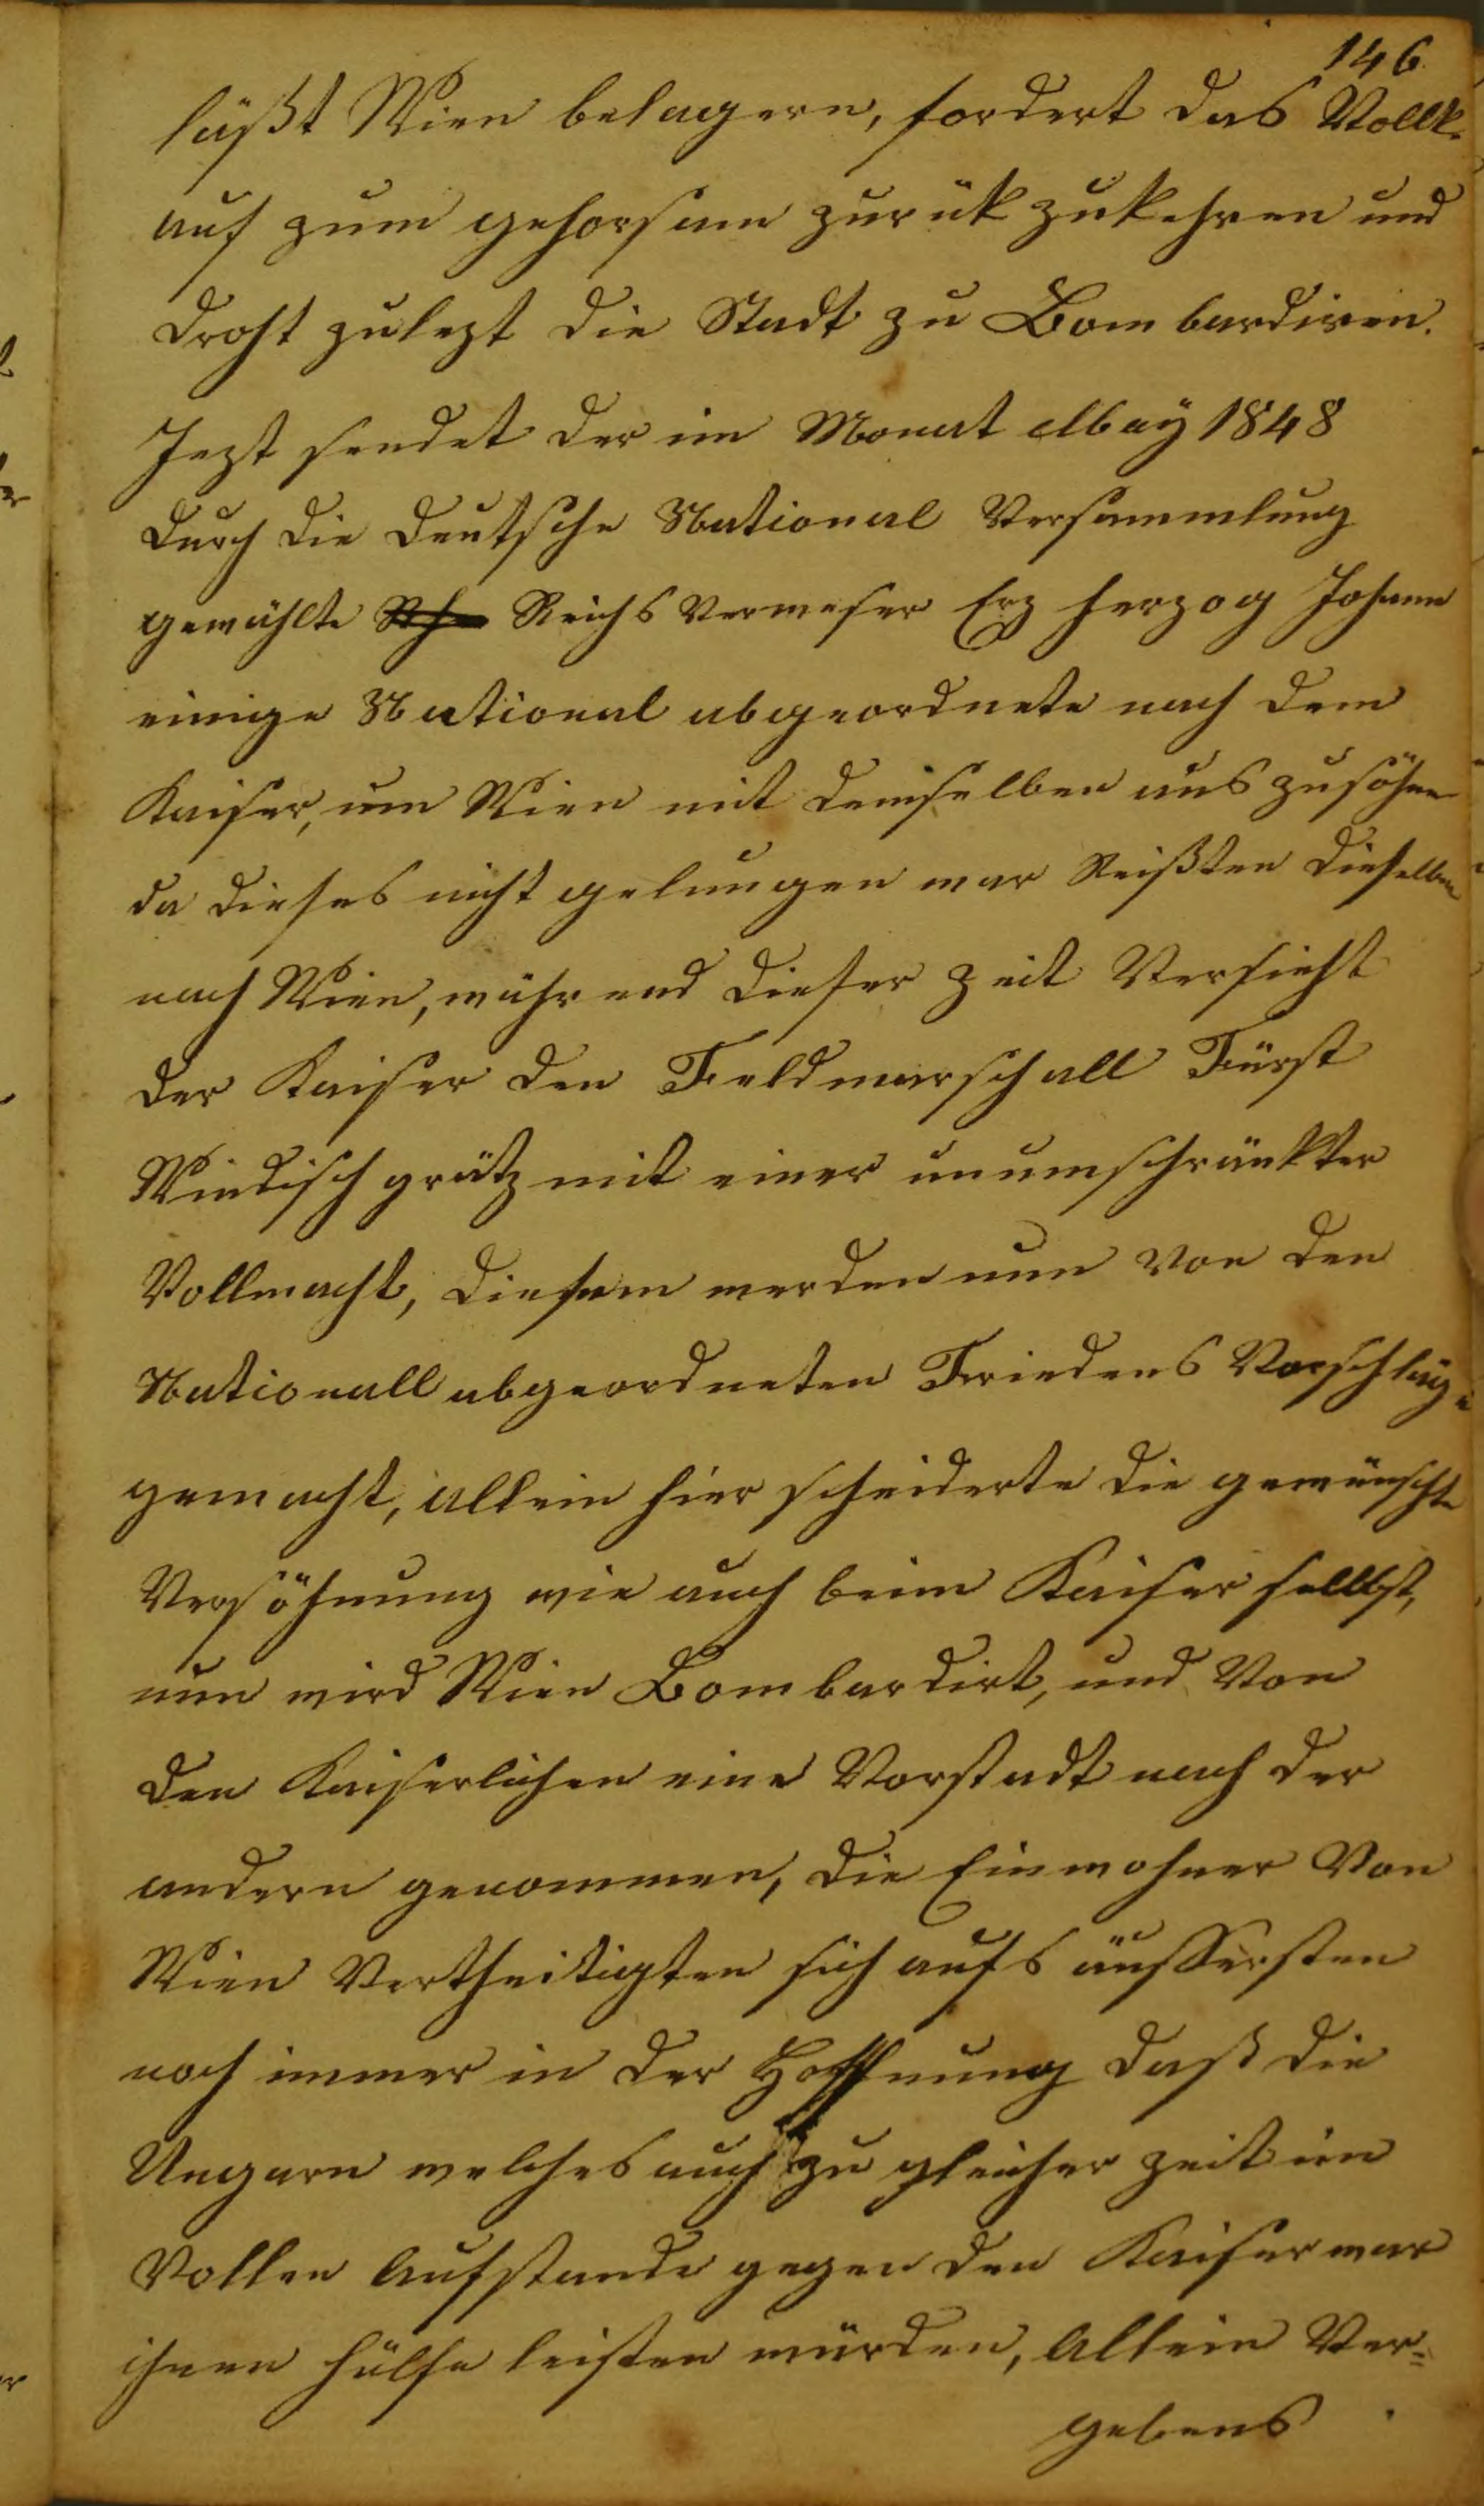 146.
läßt Wien belagern, fordert das Vollk
auf zum gehorsam zurük zukehren und
droht zulezt die Stadt zu Bombardiren.
Jezt sendet der im Monat May 1848
durch die deutsche National Versammlung
gewählte Reichs Verweser Erz herzog Johann
einige National abgeordnete nach dem
Kaiser, um Wien mit demselben aus zusöhnen
da dieses nicht gelungen war Reißten dieselben
nach Wien, während dieser zeit Versieht
der Kaiser den Feldmarschall Fürst
Windisch grätz mit einer unumschränkter
Vollmacht, diesem werden nun von den
Nationall abgeordneten Friedens Vorschläge
gemacht, allein hier scheiderte die gewünschte
Versöhnung wie auch beim Kaiser sellbst,
nun wird Wien Bombardirt, und Von
den Kaiserlichen eine Vorstadt nach der
andern genommen, die Einwohner Von
Wien Vertheitigten sich aufs äussersten
noch immer in der Hoffnung daß die
Ungarn welches auch zu gleicher zeit im
Vollen Aufstande gegen den Kaiser war
ihnen hülfe leisten würden, Allein Ver=
gebens